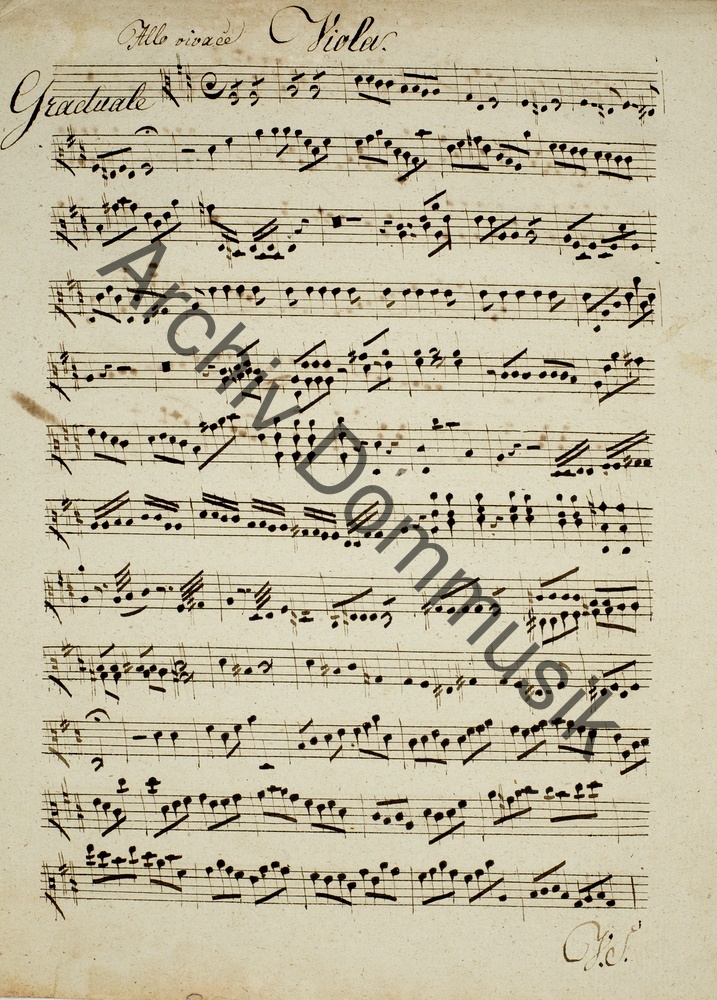 Allo vivace Viola.
Graduale
Archiv Dommusik
V.S.